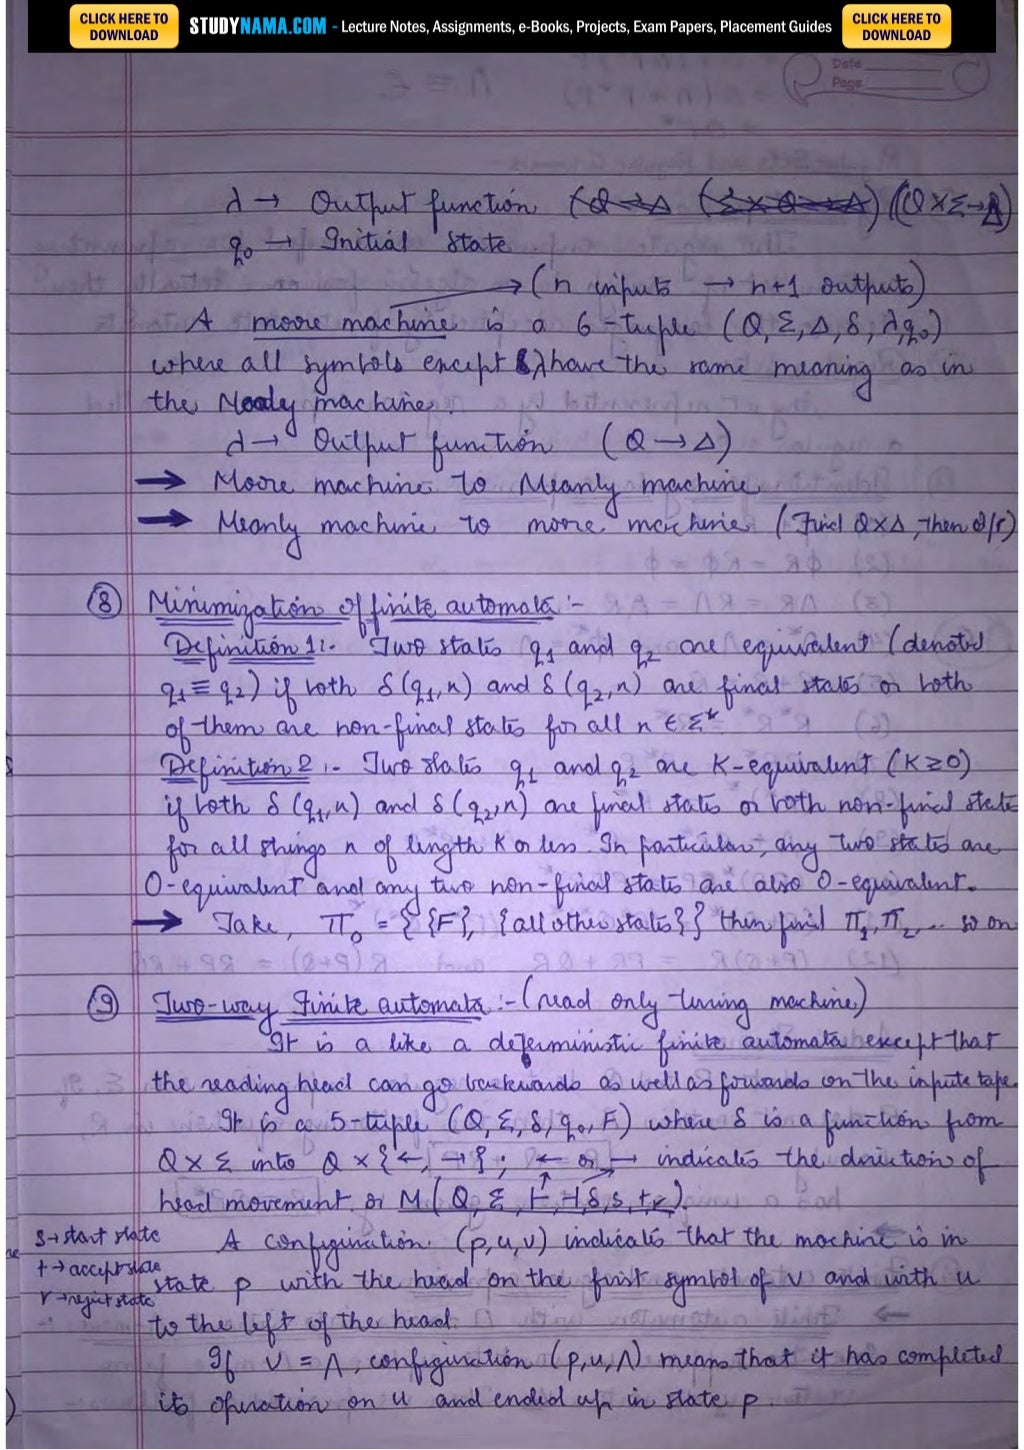 CLICK HERE TO DOWNLOAD STUDYNAMA.COM - Lecture Notes, Assignments, e-Books, Projects, Exam Papers, Placement Guides CLICK HERE TO DOWNLOAD
Date
Page
λ → Output function (Q → Δ (Σ × Q → Δ) (Q × Σ → Δ)
q₀ → Initial state
→ (n inputs → n+1 outputs)
A moore machine is a 6-tuple (Q, Σ, Δ, δ, λ, q₀)
where all symbols except λ have the same meaning as in
the Mealy machine.
λ → Output function (Q → Δ)
→ Moore machine to Meanly machine
→ Meanly machine to moore machine (Find Q×Δ, then
⑧ Minimization of finite automata :-
Definition 1:- Two states q₁ and q₂ are equivalent (denoted
q₁ ≡ q₂) if both δ(q₁, x) and δ(q₂, x) are final states or both
of them are non-final states for all x ∈ Σ*
Definition 2 :- Two states q₁ and q₂ are K-equivalent (K≥0)
if both δ(q₁, x) and δ(q₂, x) are final states or both non-final states
for all strings x of length K or less. In particular, any two states are
0-equivalent and any two non-final states are also 0-equivalent.
→ Take, Π₀ = {{F}, {all other states}} then find Π₁, Π₂, ... so on
⑨ Two-way Finite automata :- (read only turing machine)
It is a like a deterministic finite automata except that
the reading head can go backwards as well as forwards on the input tape.
It is a 5-tuple (Q, Σ, δ, q₀, F) where δ is a function from
Q × Σ into Q × {←, →}; ← or → indicates the direction of
head movement or M(Q, Σ, ⊢, ⊣, δ, s, t, r).
s → start state
t → accept state
r → reject state
A configuration (p, u, v) indicates that the machine is in
state p with the head on the first symbol of v and with u
to the left of the head.
If v = Λ, configuration (p, u, Λ) means that it has completed
its operation on u and ended up in state p.